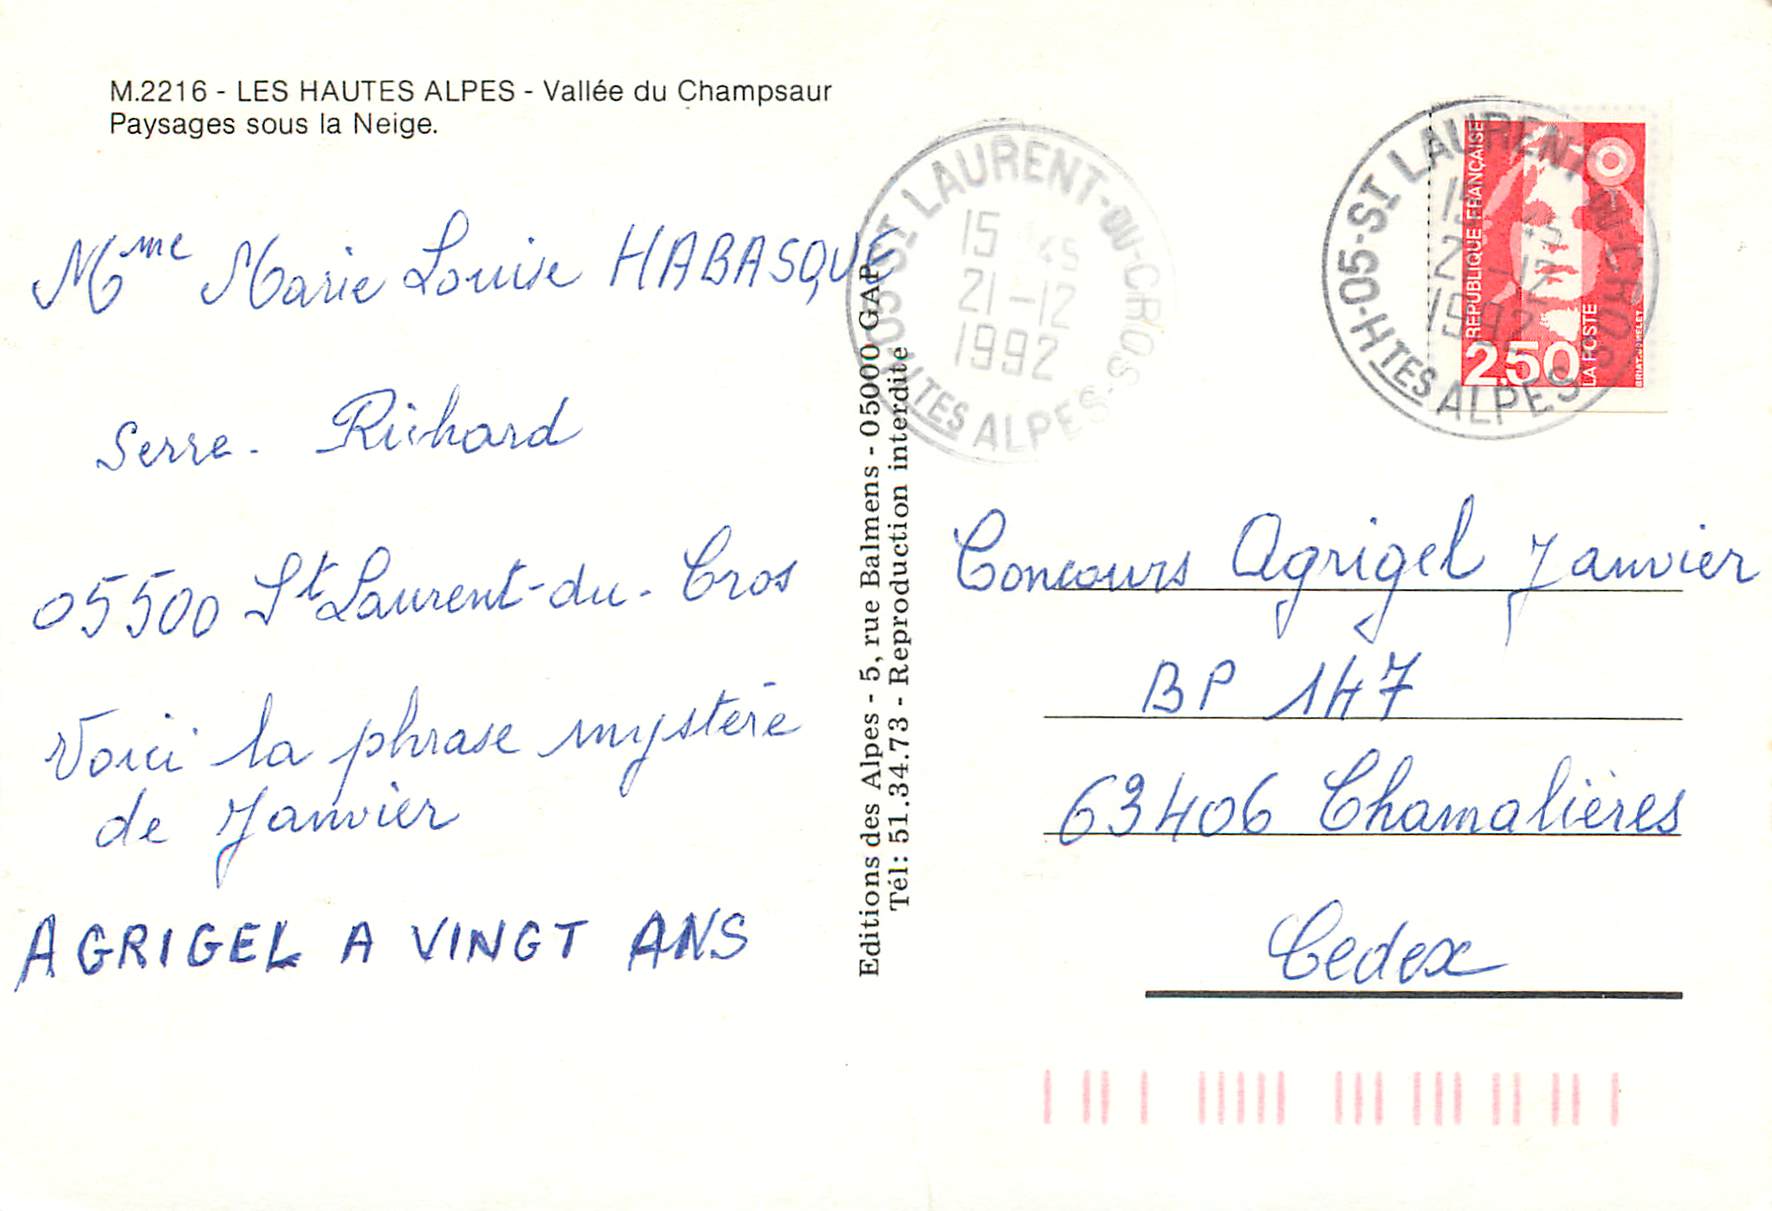 M.2216 - LES HAUTES ALPES - Vallée du Champsaur
Paysages sous la Neige.
Mme Marie Louise HABASQUE
Serre - Richard
05500 St Laurent-du-Cros
Voici la phrase mystère
de Janvier
AGRIGEL A VINGT ANS
Editions des Alpes - 5, rue Balmens - 05000 GAP
Tél: 51.34.73 - Reproduction interdite
05-ST LAURENT-DU-CROS-HTES ALPES
15 45
21-12
1992
05-ST LAURENT-DU-CROS-HTES ALPES
15 45
21-12
1992
REPUBLIQUE FRANÇAISE
2,50
LA POSTE
BRIAT-JUMELET
Concours Agrigel Janvier
BP 147
63406 Chamalières
Cedex